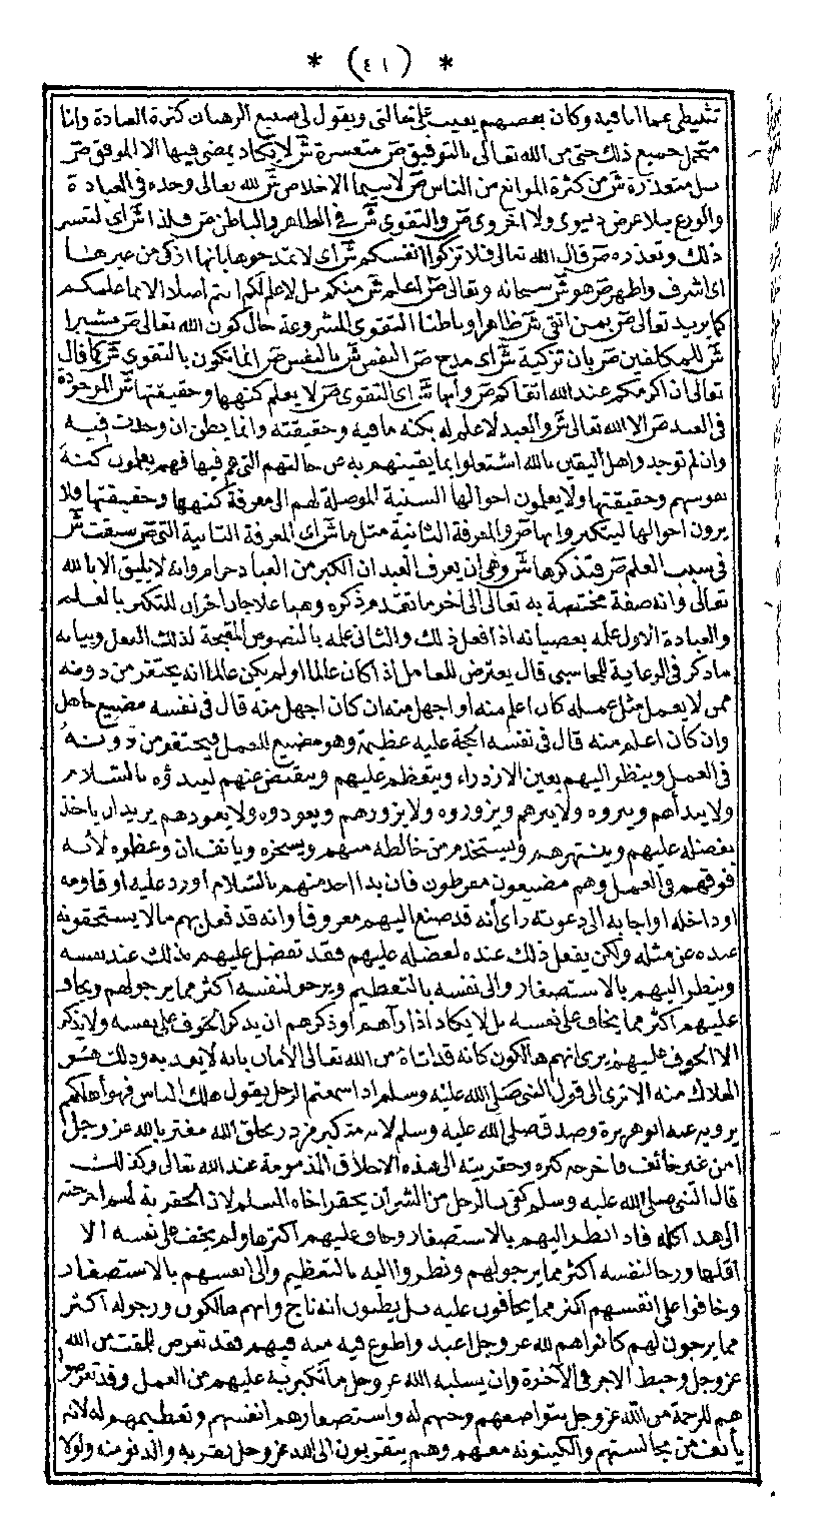 * (٤١) *
تثبيطي عما انا فيه وكان بعضهم يعيب على حالتي ويقول لي صنيع الرهبان كثرة العبادة وانا
متحمل جميع ذلك حتى من الله تعالى بالتوفيق ص متعسرة ش لا يكاد يمضي فيها الا الموفق ص
بل متعذرة ش من كثرة الموانع من الناس ص لا سيما الاخلاص ش لله تعالى وحده في العبادة
والورع بلا عرض دنيوي ولا اخروي ص والتقوى ش في الظاهر والباطن ص فلذا ش اى لتعسر
ذلك وتعذره ص قال الله تعالى فلا تزكوا انفسكم ش اى لا تمدحوها بانها ازكى من غيرها
اى اشرف واطهر ص هو ش سبحانه وتعالى ص اعلم ش منكم بل لا علم لكم انتم اصلا الا بما علمكم
كما يريد تعالى ص بمن اتقى ش ظاهرا وباطنا التقوى المشروعة حال كون الله تعالى ص مشيرا
ش للمكلفين ص بان تزكية ش اى مدح ص النفس ش بالنفس ص انما تكون بالتقوى ش كما قال
تعالى ان اكرمكم عند الله اتقاكم ص وانها ش اى التقوى ص لا يعلم كنهها وحقيقتها ش الموجودة
في العبد ص الا الله تعالى ش والعبد لا علم له بكنه ما فيه وحقيقته وانما يظن ان وجدت فيه
وان لم توجد واهل اليقين بالله اشتغلوا بما يقينهم به من حالتهم التي هم فيها فهم يعلمون كنه
نفوسهم وحقيقتها ولا يعلمون احوالها السنية الموصلة لهم الى معرفة كنهها وحقيقتها فلا
يرون احوالها ليتكبروا بها ص والمعرفة الثانية مثل ما ش اى المعرفة الثانية التي ص سبقت ش
في سبب العلم ص فتذكرها ش وهي ان يعرف العبد ان الكبر من العباد حرام وانه لا يليق الا بالله
تعالى وانه صفة مختصة به تعالى الى آخر ما تقدم ذكره وهنا علاجان اخران للتكبر بالعلم
والعبادة الاول علمه بعصيانه اذا فعل ذلك والثاني علمه بالنصوص المقبحة لذلك الفعل وبيانه
ما ذكر في الرعاية للمحاسبي قال يعترض للعامل اذا كان عالما او لم يكن عالما انه يحتقر من دونه
ممن لا يعمل مثل عمله كان اعلم منه او اجهل منه ان كان اجهل منه قال في نفسه مضيع جاهل
وان كان اعلم منه قال في نفسه الحجة عليه عظيمة وهو مضيع للعمل فيحتقر من دونه
في العمل وينظر اليهم بعين الازدراء ويتعظم عليهم وينقبض عنهم ليبدؤه بالسلام
ولا يبدأهم ويبروه ولا يبرهم ويزوروه ولا يزورهم ويعودوه ولا يعودهم يريد ان ياخذ
بفضله عليهم وينتهرهم ويستخدم من خالطه منهم ويسخره ويانف ان وعظوه لأنه
فوقهم في العمل وهم مضيعون مفرطون فان بدا احد منهم بالسلام او رد عليه او قاومه
او داخله او اجابه الى دعوته رأى أنه قد صنع اليهم معروفا وانه قد فعل بهم ما لا يستحقونه
عنده عن مثله ولكن يفعل ذلك عنده لفضله عليهم فقد تفضل عليهم بذلك عند نفسه
وينظر اليهم بالاستصغار والى نفسه بالتعظيم ويرجو لنفسه اكثر مما يرجو لهم ويخاف
عليهم اكثر مما يخاف على نفسه بل لا يكاد اذا رآهم او ذكرهم ان يذكر الخوف على نفسه ولا يذكر
الا الخوف عليهم يرى انهم هالكون كانه قد اتاه من الله تعالى الأمان بانه لا يعذبه وذلك هو
الهلاك منه الا ترى الى قول النبي صلى الله عليه وسلم اذا سمعتم الرجل يقول هلك الناس فهو أهلكهم
يرويه عنه ابو هريرة وصدق صلى الله عليه وسلم لانه متكبر مزدر بخلق الله مغتر بالله عز وجل
امن غير خائف فاخرجه كبره وحقريته الى هذه الاخلاق المذمومة عند الله تعالى وكذلك
قال النبي صلى الله عليه وسلم كفى بالرجل من الشر أن يحقر اخاه المسلم لان الحقرية لهم اخرجته
الى هذا كله فاذا نظر اليهم بالاستصغار وخاف عليهم اكثرها ولم يخف على نفسه الا
اقلها ورجا لنفسه اكثر مما يرجو لهم ونظروا اليه بالتعظيم والى انفسهم بالاستصغار
وخافوا على انفسهم اكثر مما يخافون عليه بل يظنون انه ناج وانهم هالكون ورجوا له اكثر
مما يرجون لهم كانوا هم لله عز وجل اعبد واطوع فيه منه فيهم فقد تعرض للمقت من الله
عز وجل وحبط الاجر في الآخرة وان يسلبه الله عز وجل ما تكبر به عليهم من العمل وقد تعرضوا
هم للرحمة من الله عز وجل بتواضعهم وحبهم له واستصغارهم انفسهم وتعظيمهم له لانه
يأنف من مجالستهم والكينونة معهم وهم يتقربون الى الله عز وجل بقربه والدنو منه ولولا